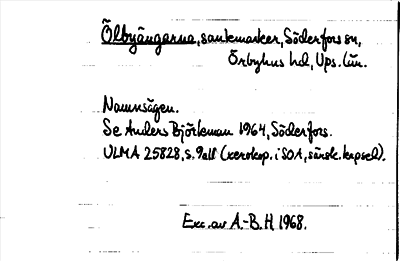 Ölbyängarna, sankmarker, Söderfors sn,
Örbyhus hd, Ups. län.
Namnsägen.
Se Anders Björkman 1964, Söderfors.
ULMA 25828, s. 9 all (xerokop. i SOA, särsk. kapsel).
Exc. av A.-B. H 1968.